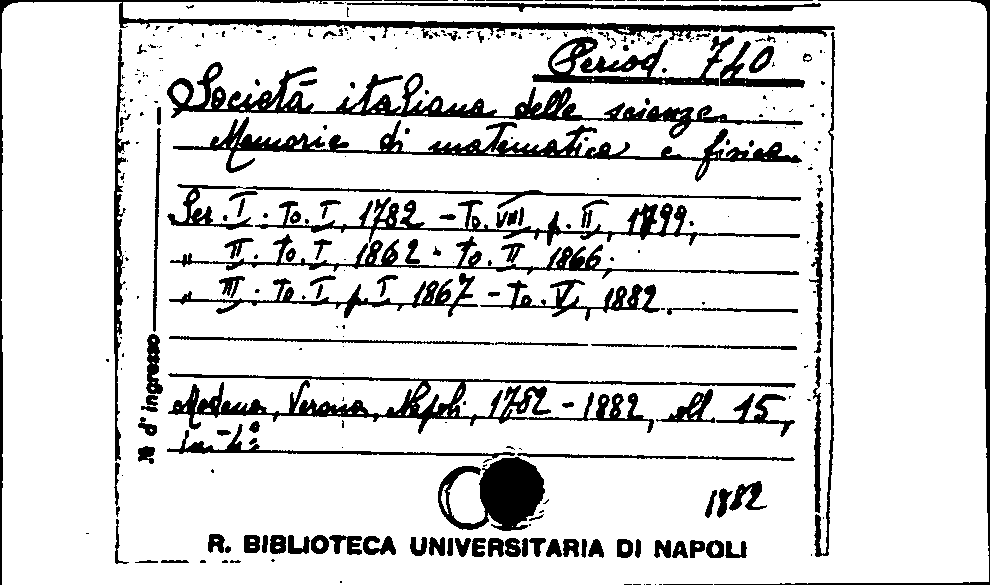 Period. 740
Società italiana delle scienze.
Memorie di matematica e fisica.
Ser. I: To. I, 1782 - To. VIII, p. II, 1799;
" II: To. I, 1862 - To. II, 1866;
" III: To. I, p. I, 1867 - To. V, 1882.
Modena, Verona, Napoli, 1782 - 1882, voll. 15,
in-4º
N. d'ingresso
1882
R. BIBLIOTECA UNIVERSITARIA DI NAPOLI